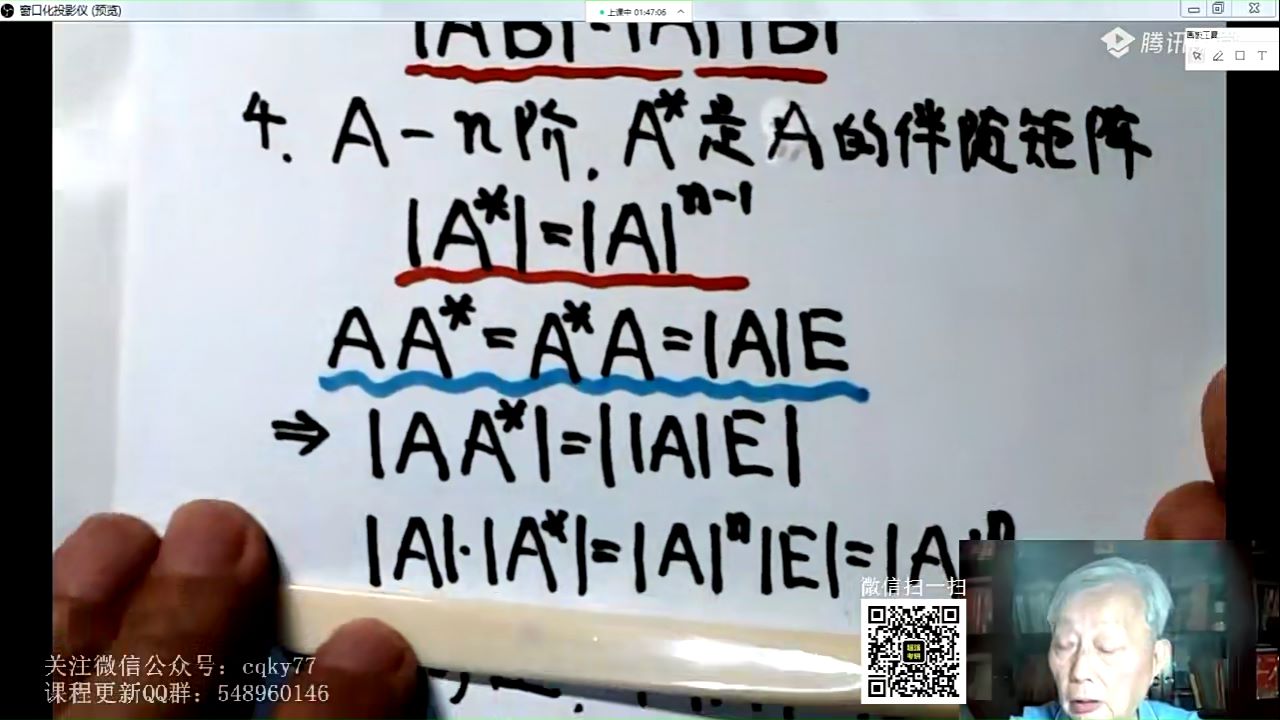 窗口化投影仪 (预览)
上课中 01:47:06
腾讯
|AB|=|A||B|
4. A-n阶. A*是A的伴随矩阵
|A*|=|A|ⁿ⁻¹
AA*=A*A=|A|E
⇒ |AA*|=||A|E|
|A|·|A*|=|A|ⁿ|E|=|A|ⁿ
微信扫一扫
关注微信公众号: cqky77
课程更新QQ群: 548960146